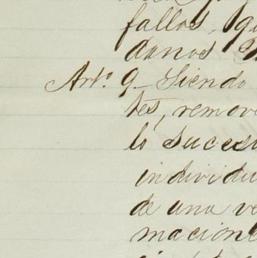 fallos, q
danos
Art.º 9. Siendo
tes, remov
lo suces
individu
de una ve
macione